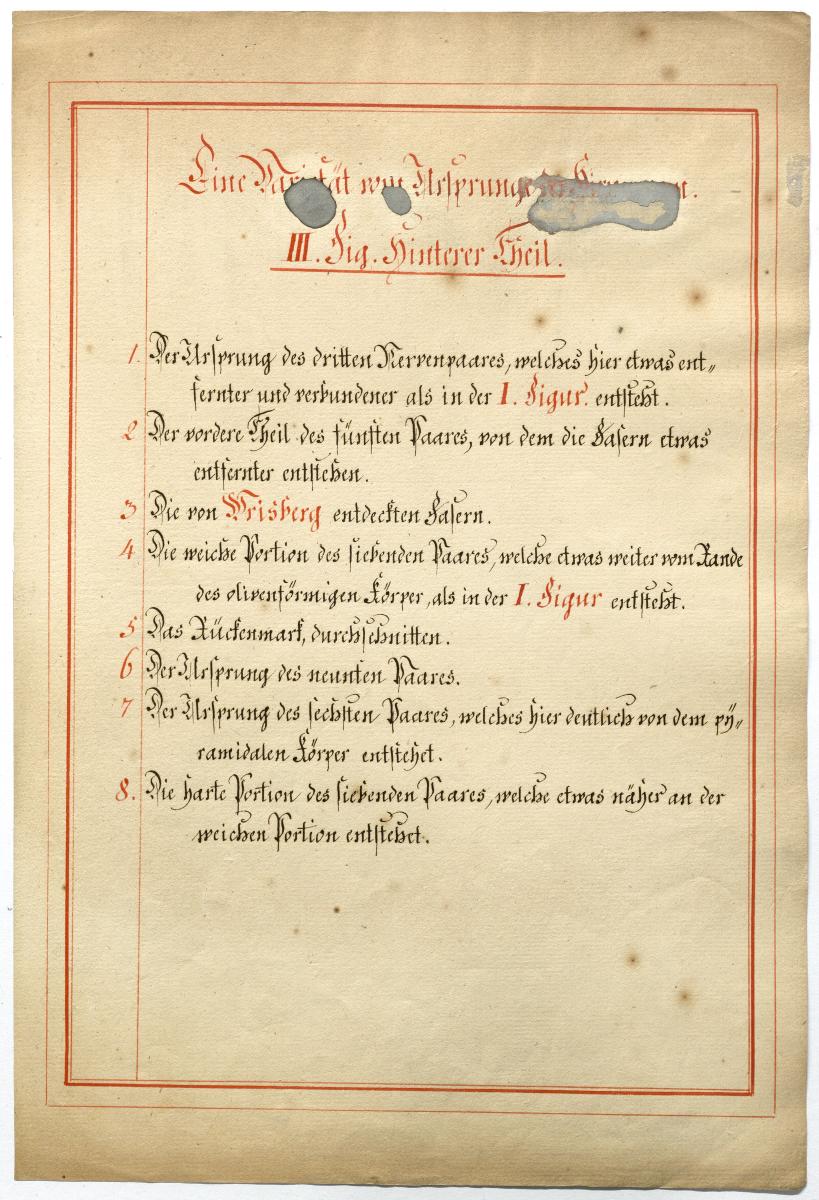 Eine Varietät vom Ursprunge der
III. Fig. Hinterer Theil.
1. Der Ursprung des dritten Nervenpaares, welches hier etwas ent„
fernter und verbundener als in der I. Figur. entsteht.
2 Der vordere Theil des fünften Paares, von dem die Fasern etwas
entfernter entstehen.
3 Die von Wrisberg entdeckten Fasern.
4 Die weiche Portion des siebenden Paares, welche etwas weiter vom Rande
des olivenförmigen Körper, als in der I. Figur entsteht.
5 Das Rückenmark, durchschnitten.
6 Der Ursprung des neunten Paares.
7 Der Ursprung des sechsten Paares, welches hier deutlich von dem py„
ramidalen Körper entstehet.
8. Die harte Portion des siebenden Paares, welche etwas näher an der
weichen Portion entstehet.